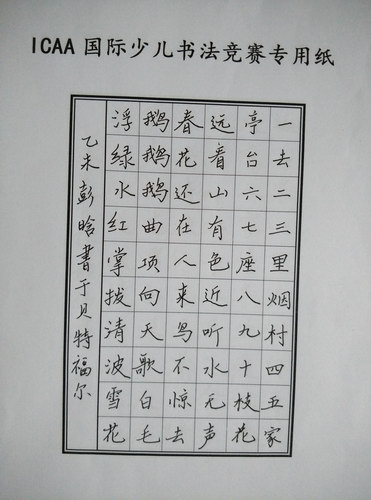 ICAA国际少儿书法竞赛专用纸
一去二三里烟村四五家
亭台六七座八九十枝花
远看山有色近听水无声
春花还在人来鸟不惊去
鹅鹅鹅曲项向天歌白毛
浮绿水红掌拨清波雪花
乙未彭晗書于贝特福尔